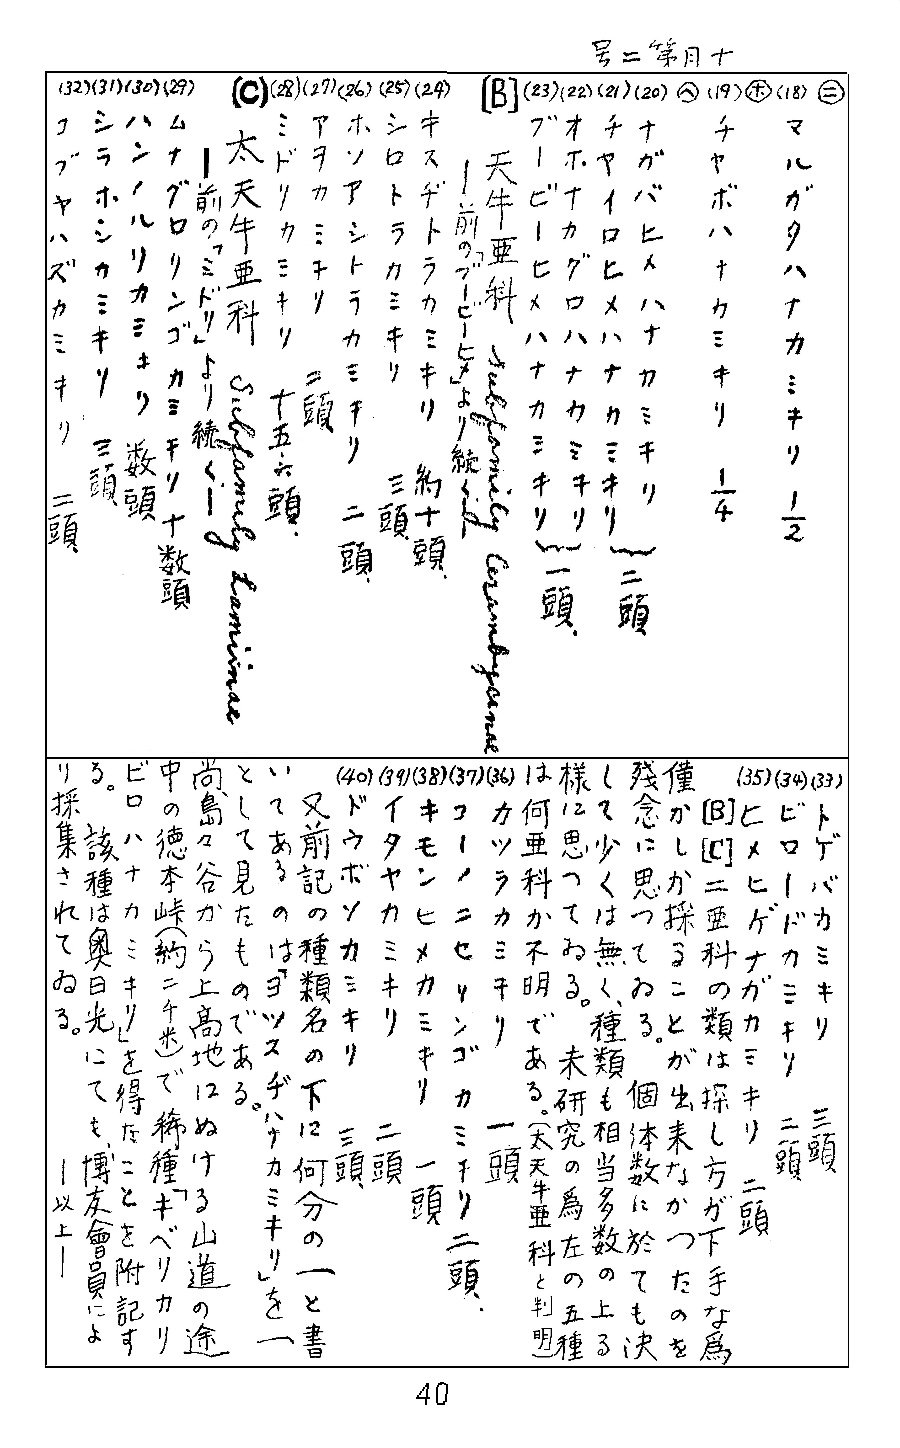 十月第二号
㊁
(18) マルガタハナカミキリ 1/2
㋭
(19) チャボハナカミキリ 1/4
㋬
(20) ナガバヒメハナカミキリ
(21) チャイロヒメハナカミキリ } 二頭
(22) オホナカグロハナカミキリ
(23) ブービーヒメハナカミキリ } 一頭.
[B] 天牛亜科 Subfamily Cerambycinae
ー前の「ブービーヒメ」より続くー
(24) キスヂトラカミキリ 約十頭.
(25) シロトラカミキリ 三頭.
(26) ホソアシトラカミキリ 二頭.
(27) アヲカミキリ 二頭.
(28) ミドリカミキリ 十五・六頭.
(C) 太天牛亜科 Subfamily Lamiinae
ー前の「ミドリ」より続くー
(29) ムナグロリンゴカミキリ 十数頭
(30) ハンノルリカミキリ 数頭
(31) シラホシカミキリ 三頭.
(32) コブヤハズカミキリ 二頭.
(33) トゲバカミキリ 三頭
(34) ビロードカミキリ 二頭
(35) ヒメヒゲナガカミキリ 二頭
[B][C]二亜科の類は採し方が下手な為
僅かしか採ることが出来なかつたのを
残念に思つてゐる。個体数に於ても決
して少くは無く、種類も相当多数の上る
様に思つてゐる。未研究の為左の五種
は何亜科か不明である。(太天牛亜科と判明)
(36) カツラカミキリ 一頭
(37) コーノニセリンゴカミキリ 二頭.
(38) キモンヒメカミキリ 一頭
(39) イタヤカミキリ 二頭
(40) ドウボソカミキリ 三頭.
又前記の種類名の下に何分の一と書
いてあるのは「ヨツスヂハナカミキリ」を一
として見たものである。
尚島々谷から上高地にぬける山道の途
中の徳本峠(約二千米)で稀種「キベリカリ
ビロハナカミキリ」を得たことを附記す
る。該種は奥日光にても、博友會員によ
り採集されてゐる。 ー以上ー
40